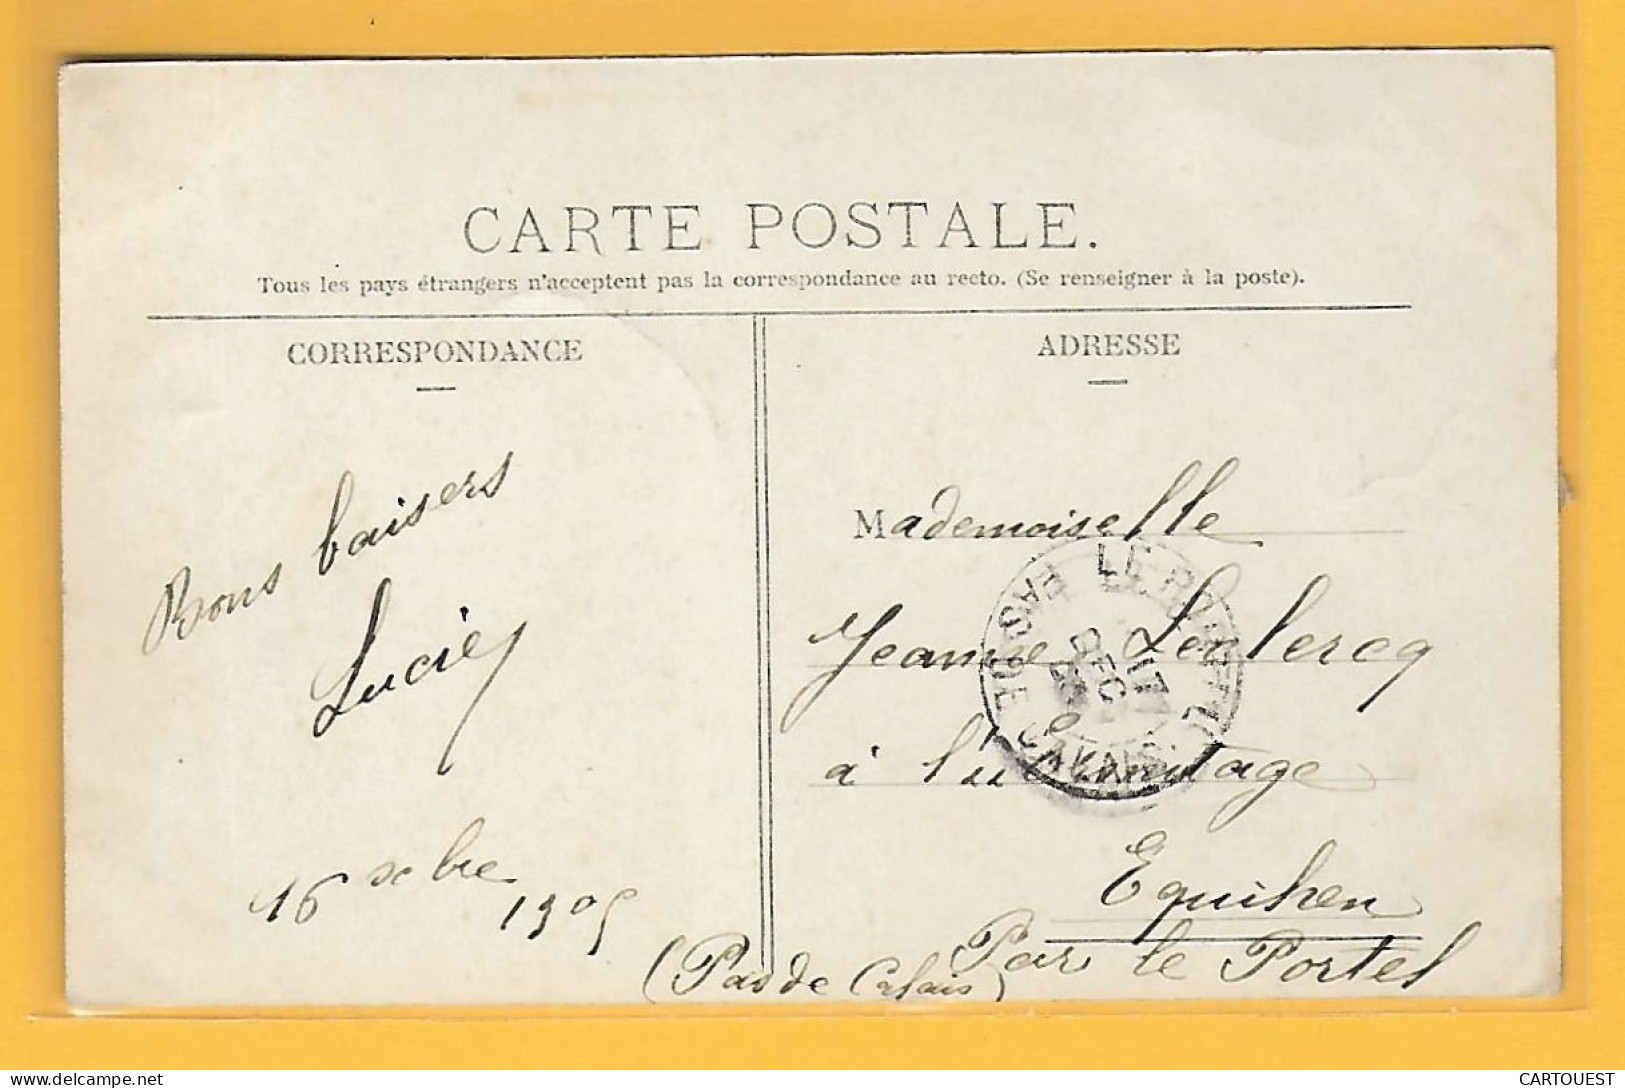 CARTE POSTALE.
Tous les pays étrangers n'acceptent pas la correspondance au recto. (Se renseigner à la poste).
CORRESPONDANCE
ADRESSE
Bons baisers
Lucie
16 xbre 1905
Mademoiselle
Jeanne Leclercq
à l'Ermitage
Equihen
Par le Portel
(Pas de Calais)
LE PORTEL
PAS DE CALAIS
17
DEC
delcampe.net
CARTOUEST